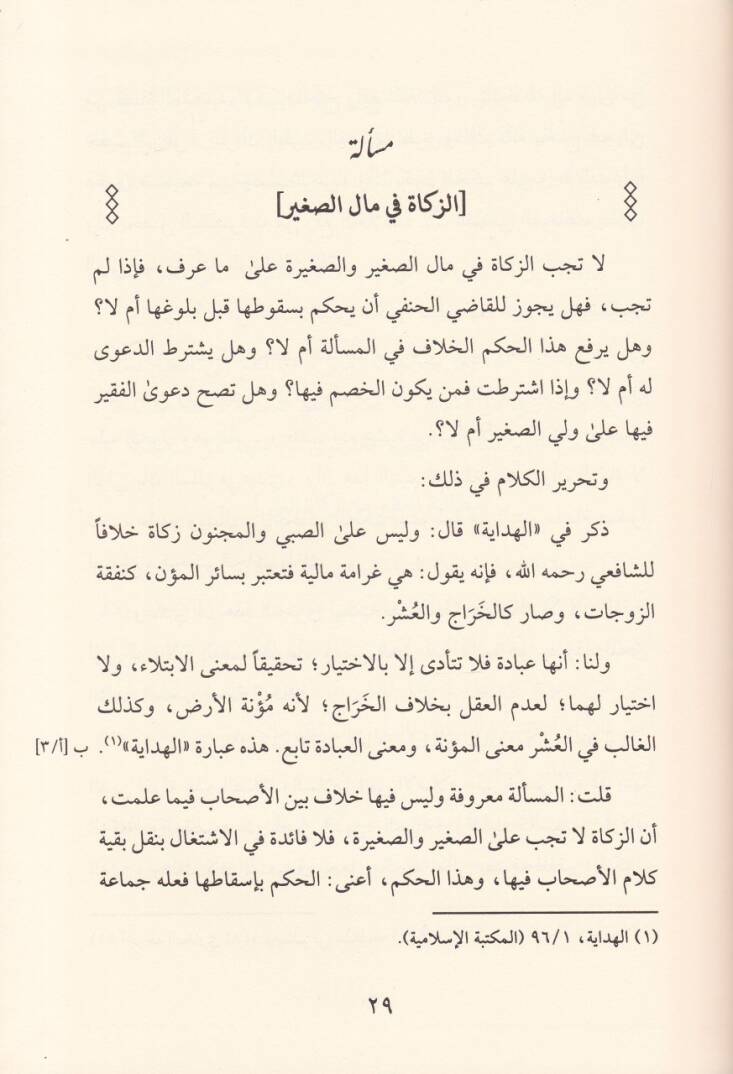 مسألة
[الزكاة في مال الصغير]
لا تجب الزكاة في مال الصغير والصغيرة علىٰ ما عرف، فإذا لم
تجب، فهل يجوز للقاضي الحنفي أن يحكم بسقوطها قبل بلوغها أم لا؟
وهل يرفع هذا الحكم الخلاف في المسألة أم لا؟ وهل يشترط الدعوى
له أم لا؟ وإذا اشترطت فمن يكون الخصم فيها؟ وهل تصح دعوىٰ الفقير
فيها علىٰ ولي الصغير أم لا؟.
وتحرير الكلام في ذلك:
ذكر في «الهداية» قال: وليس علىٰ الصبي والمجنون زكاة خلافاً
للشافعي رحمه الله، فإنه يقول: هي غرامة مالية فتعتبر بسائر المؤن، كنفقة
الزوجات، وصار كالخَرَاج والعُشْر.
ولنا: أنها عبادة فلا تتأدى إلا بالاختيار؛ تحقيقاً لمعنى الابتلاء، ولا
اختيار لهما؛ لعدم العقل بخلاف الخَرَاج؛ لأنه مُؤْنة الأرض، وكذلك
الغالب في العُشْر معنى المؤنة، ومعنى العبادة تابع. هذه عبارة «الهداية»(١). ب [٣/أ]
قلت: المسألة معروفة وليس فيها خلاف بين الأصحاب فيما علمت،
أن الزكاة لا تجب علىٰ الصغير والصغيرة، فلا فائدة في الاشتغال بنقل بقية
كلام الأصحاب فيها، وهذا الحكم، أعنى: الحكم بإسقاطها فعله جماعة
(١) الهداية، ٩٦/١ (المكتبة الإسلامية).
٢٩